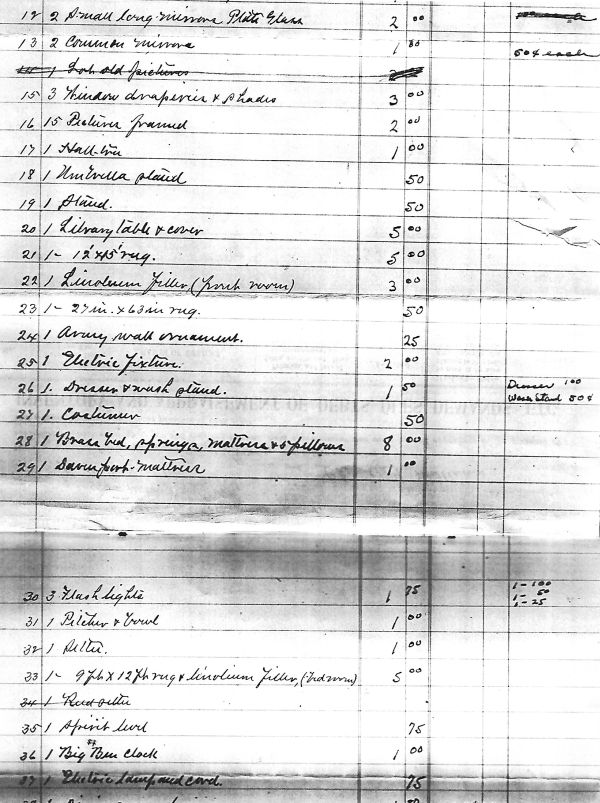 12 2 Small long mirrors Plate Glass 2 00
13 2 Common mirrors 1 00 50¢ each
14 1 Lot old pictures
15 3 Window draperies & shades 3 00
16 15 Pictures framed 2 00
17 1 Hall-tree 1 00
18 1 Umbrella stand 50
19 1 Stand. 50
20 1 Library table & cover 5 00
21 1- 12'x15' rug. 5 00
22 1 Linoleum filler, (front room) 3 00
23 1- 27 in. x 63 in rug. 50
24 1 Army wall ornament. 25
25 1 Electric fixture. 2 00
26 1. Dresser & wash stand. 1 50 Dresser 1 00
Wash Stand 50¢
27 1. Costumer 50
28 1 Brass bed, springs, mattress & 5 pillows 8 00
29 1 Davenport-mattress 1 00
30 3 Flash lights 1 75 1-100
1- 50
1-25
31 1 Pitcher & bowl 1 00
32 1 Settee. 1 00
33 1- 9 ft x 12 ft rug & linoleum filler, (bedroom) 5 00
34 1 Reed settee
35 1 Spirit level 75
36 1 Big Ben Clock 1 00
37 1 Electric lamp and cord. 75